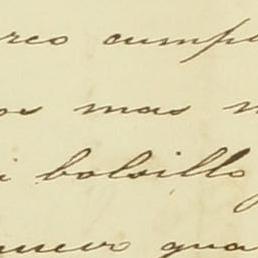 reo cumpl
os mas n
i bolsillo
nuevo gua